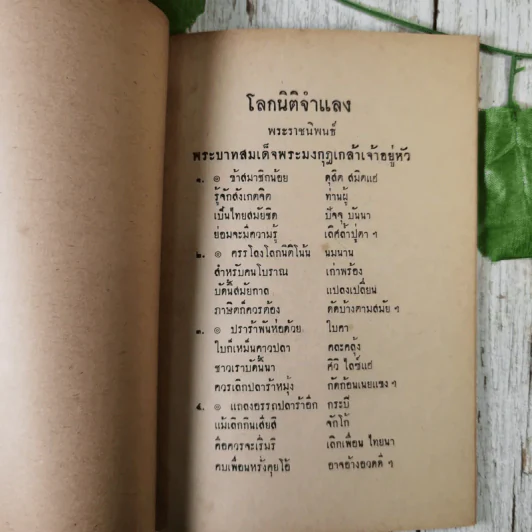 โลกนิติจำแลง
พระราชนิพนธ์
พระบาทสมเด็จพระมงกุฎเกล้าเจ้าอยู่หัว
๑. ๏ ข้าสมาชิกน้อย ดุสิต สมิตแฮ
รู้จักสังเกตจิต ท่านผู้
เป็นไทยสมัยชิต ปัจจุ บันนา
ย่อมจะมีความรู้ เลิศล้ำปู่ตา ฯ
๒. ๏ ครรโลงโลกนิติโน้น นมนาน
สำหรับคนโบราณ เก่าพร้อง
บัดนี้สมัยกาล แปลงเปลี่ยน
ภาษิตก็ควรต้อง ดัดบ้างตามสมัย ฯ
๓. ๏ ปราร้าพันห่อด้วย ใบคา
ใบก็เหม็นคาวปลา คละคลุ้ง
ชาวเราบัดนี้นา ศิวิ ไลซ์แฮ
ควรเลิกปลาร้าหมุ้ง กัดก้อนเนยแขง ฯ
๔. ๏ แถลงอรรถปลาร้าอีก กระบี่
แม้เลิกกินเสียสิ จักโก้
คือควรจะเริ่มริ เลิกเพื่อน ไทยนา
คบเพื่อนหรั่งคุยโอ้ อาจอ้างอวดดี ฯ